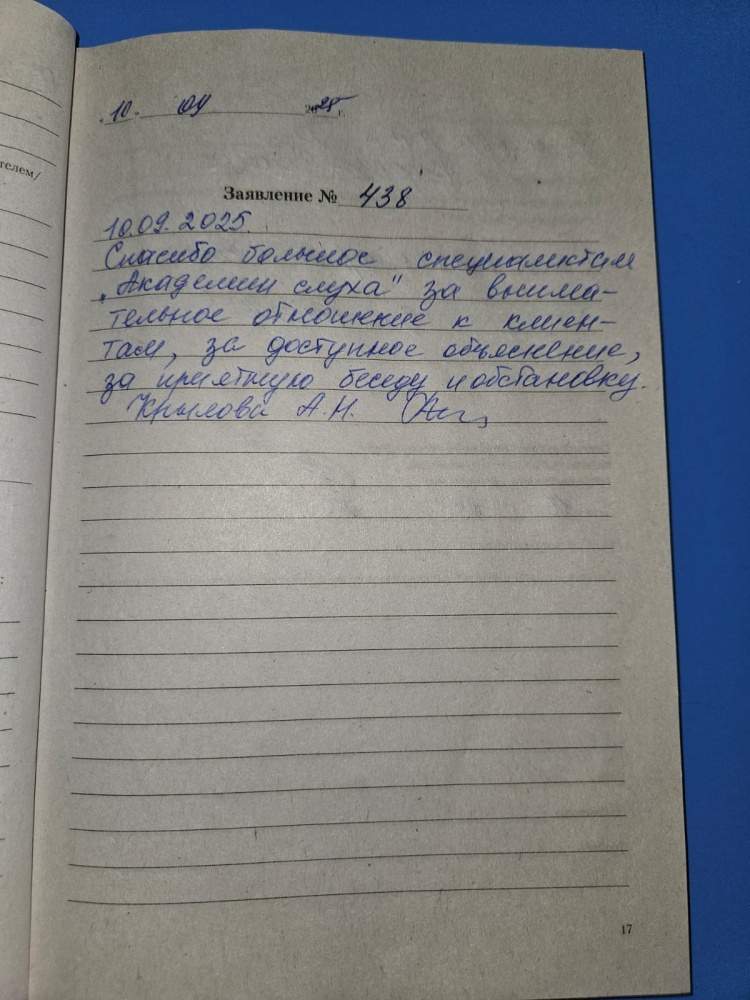 телем/
:
„10. 09 2025 г.
Заявление № 438
10.09.2025.
Спасибо большое специалистам
„Академии слуха" за внима-
тельное отношение к клиен-
там, за доступное объяснение,
за приятную беседу и обстановку.
Крылова А.Н.
17